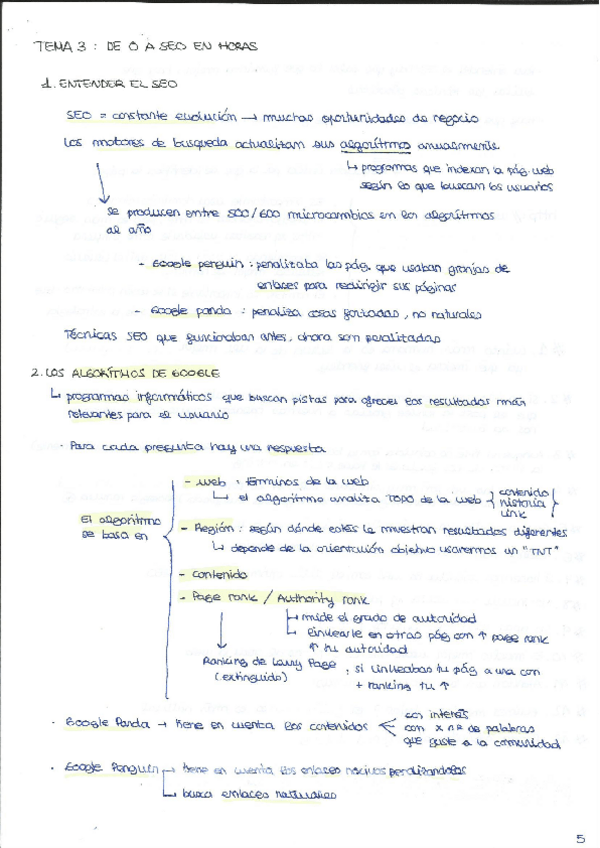 TEMA 3 : DE 0 A SEO EN HORAS
1. ENTENDER EL SEO
SEO = constante evolución → muchas oportunidades de negocio
Los motores de busqueda actualizan sus algorítmos anualmente
↳ programas que indexan la pág. web
según lo que buscan los usuarios
se producen entre 500/600 microcambios en los algorítmos
al año
- Google penguin : penalizaba las pág. que usaban granjas de
enlaces para redirigir sus páginas
- Google panda : penaliza cosas forzadas, no naturales
Técnicas SEO que funcionaban antes, ahora son penalizadas
2. LOS ALGORÍTMOS DE GOOGLE
↳ programas informáticos que buscan pistas para ofrecer los resultados más
relevantes para el usuario
· Para cada pregunta hay una respuesta
El algoritmo
se basa en
- web : términos de la web
↳ el algoritmo analiza TODO de la web { contenido
historia
link
- Región : según dónde estés le muestran resultados diferentes
↳ depende de la orientación objetivo usaremos un "TNT"
- contenido
- Page rank / Authority rank
↳ mide el grado de autoridad
↳ linkearle en otras pág con ↑ page rank
↑ tu autoridad
Ranking de Larry Page, si linkeabas tu pág a una con
(extinguido) + ranking tu ↑
· Google Panda → tiene en cuenta los contenidos
con interés
con x nº de palabras
que guste a la comunidad
· Google Penguin → tiene en cuenta los enlaces nocivos penalizándolos
↳ busca enlaces naturales
5